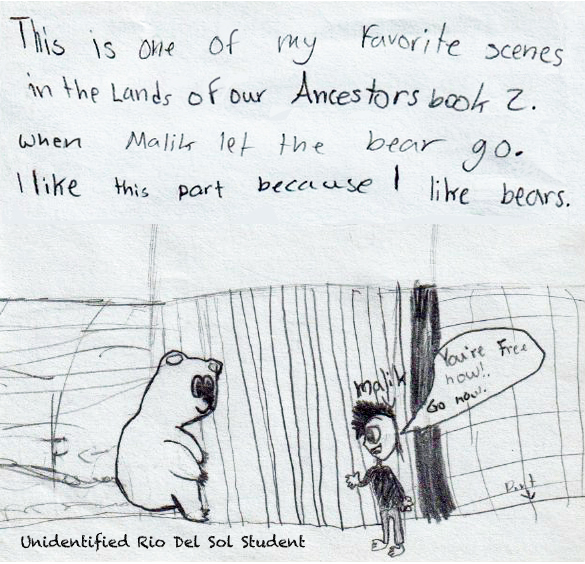 This is one of my Favorite scenes
in the Lands of our Ancestors book 2.
when Malik let the bear go.
I like this part because I like bears.
malik
You're Free
now!.
Go now!.
Dirt
Unidentified Rio Del Sol Student